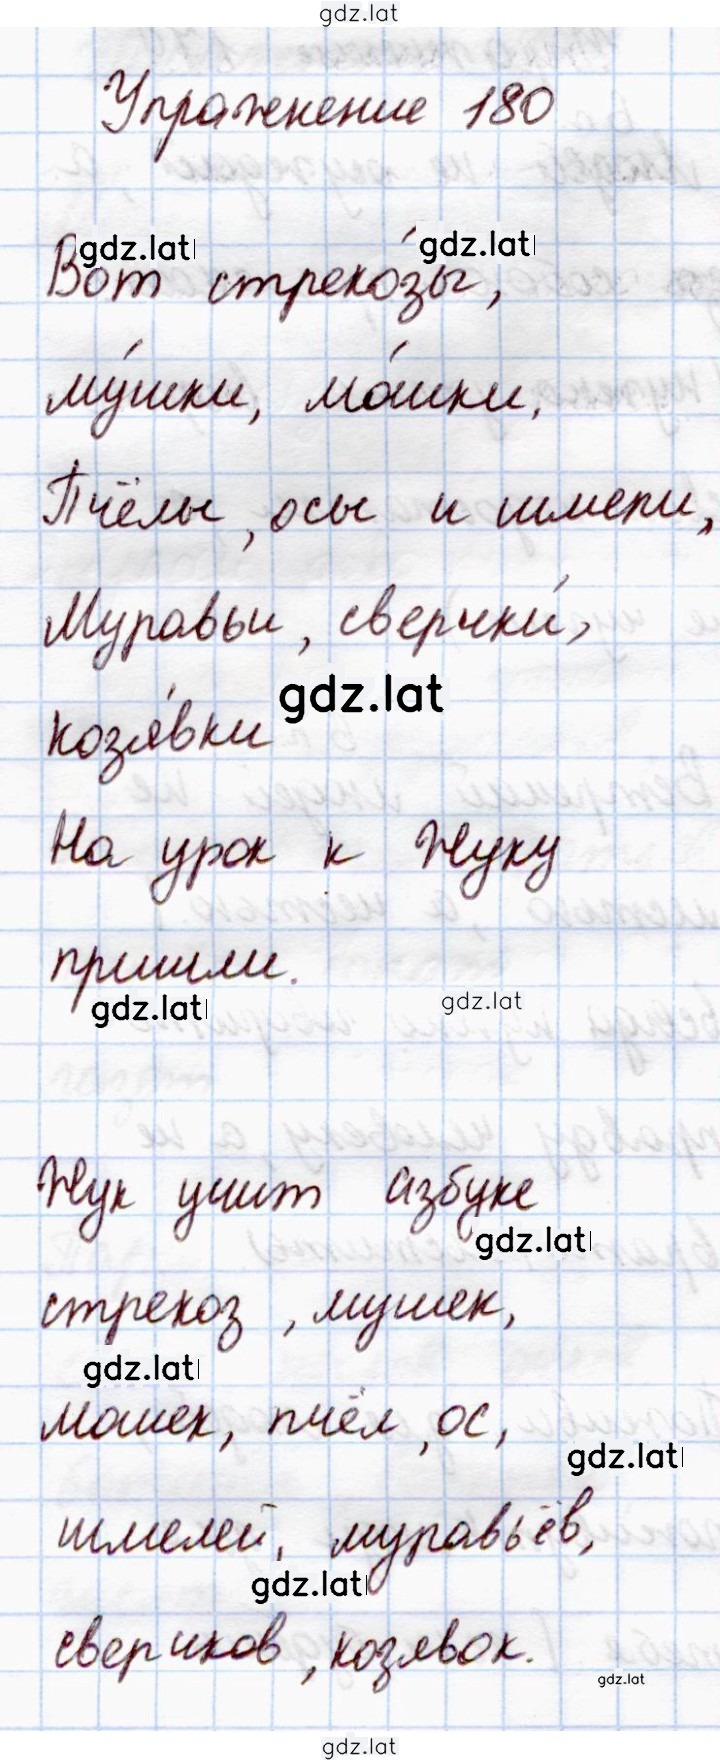 gdz.lat
Упражнение 180
gdz.lat gdz.lat
Вот стреко́зы,
му́шки, мо́шки,
Пчёлы, осы и шмели,
Муравьи, сверчки́,
gdz.lat
козя́вки
На урок к Жуку
пришли.
gdz.lat gdz.lat
Жук учит азбуке
gdz.lat
стрекоз, мушек,
gdz.lat
мошек, пчёл, ос,
gdz.lat
шмелей, муравьёв,
gdz.lat
сверчков, козявок.
gdz.lat
gdz.lat